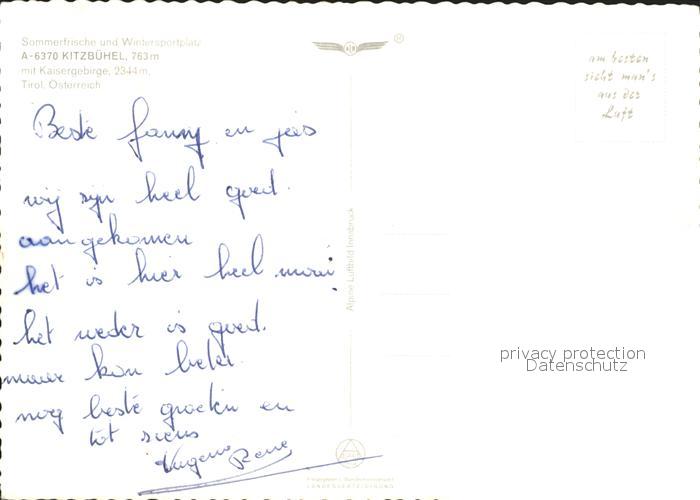 Sommerfrische und Wintersportplatz
A-6370 KITZBÜHEL, 763 m
mit Kaisergebirge, 2344 m,
Tirol, Österreich
am besten
sieht man's
aus der
Luft
Beste fanny en jees
wij zijn heel goed
aangekomen
het is hier heel mooi
het weder is goed.
maar kon beter.
nog beste groeten en
tot siens
Rene
Alpine Luftbild Innsbruck
privacy protection
Datenschutz
LANDESVERTEIDIGUNG